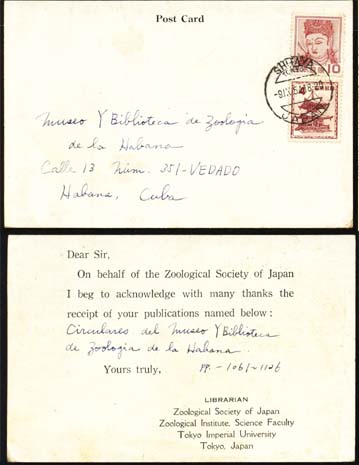 Post Card
10
SHIBUYA
JAPAN
Museo Y Biblioteca de Zoologia
de la Habana
Calle 13 Núm. 351-VEDADO
Habana, Cuba
Dear Sir,
On behalf of the Zoological Society of Japan
I beg to acknowledge with many thanks the
receipt of your publications named below:
Circulares del Museo Y Biblioteca
de Zoologia de la Habana.
pp. - 1061~1126
Yours truly,
LIBRARIAN
Zoological Society of Japan
Zoological Institute, Science Faculty
Tokyo Imperial University
Tokyo, Japan